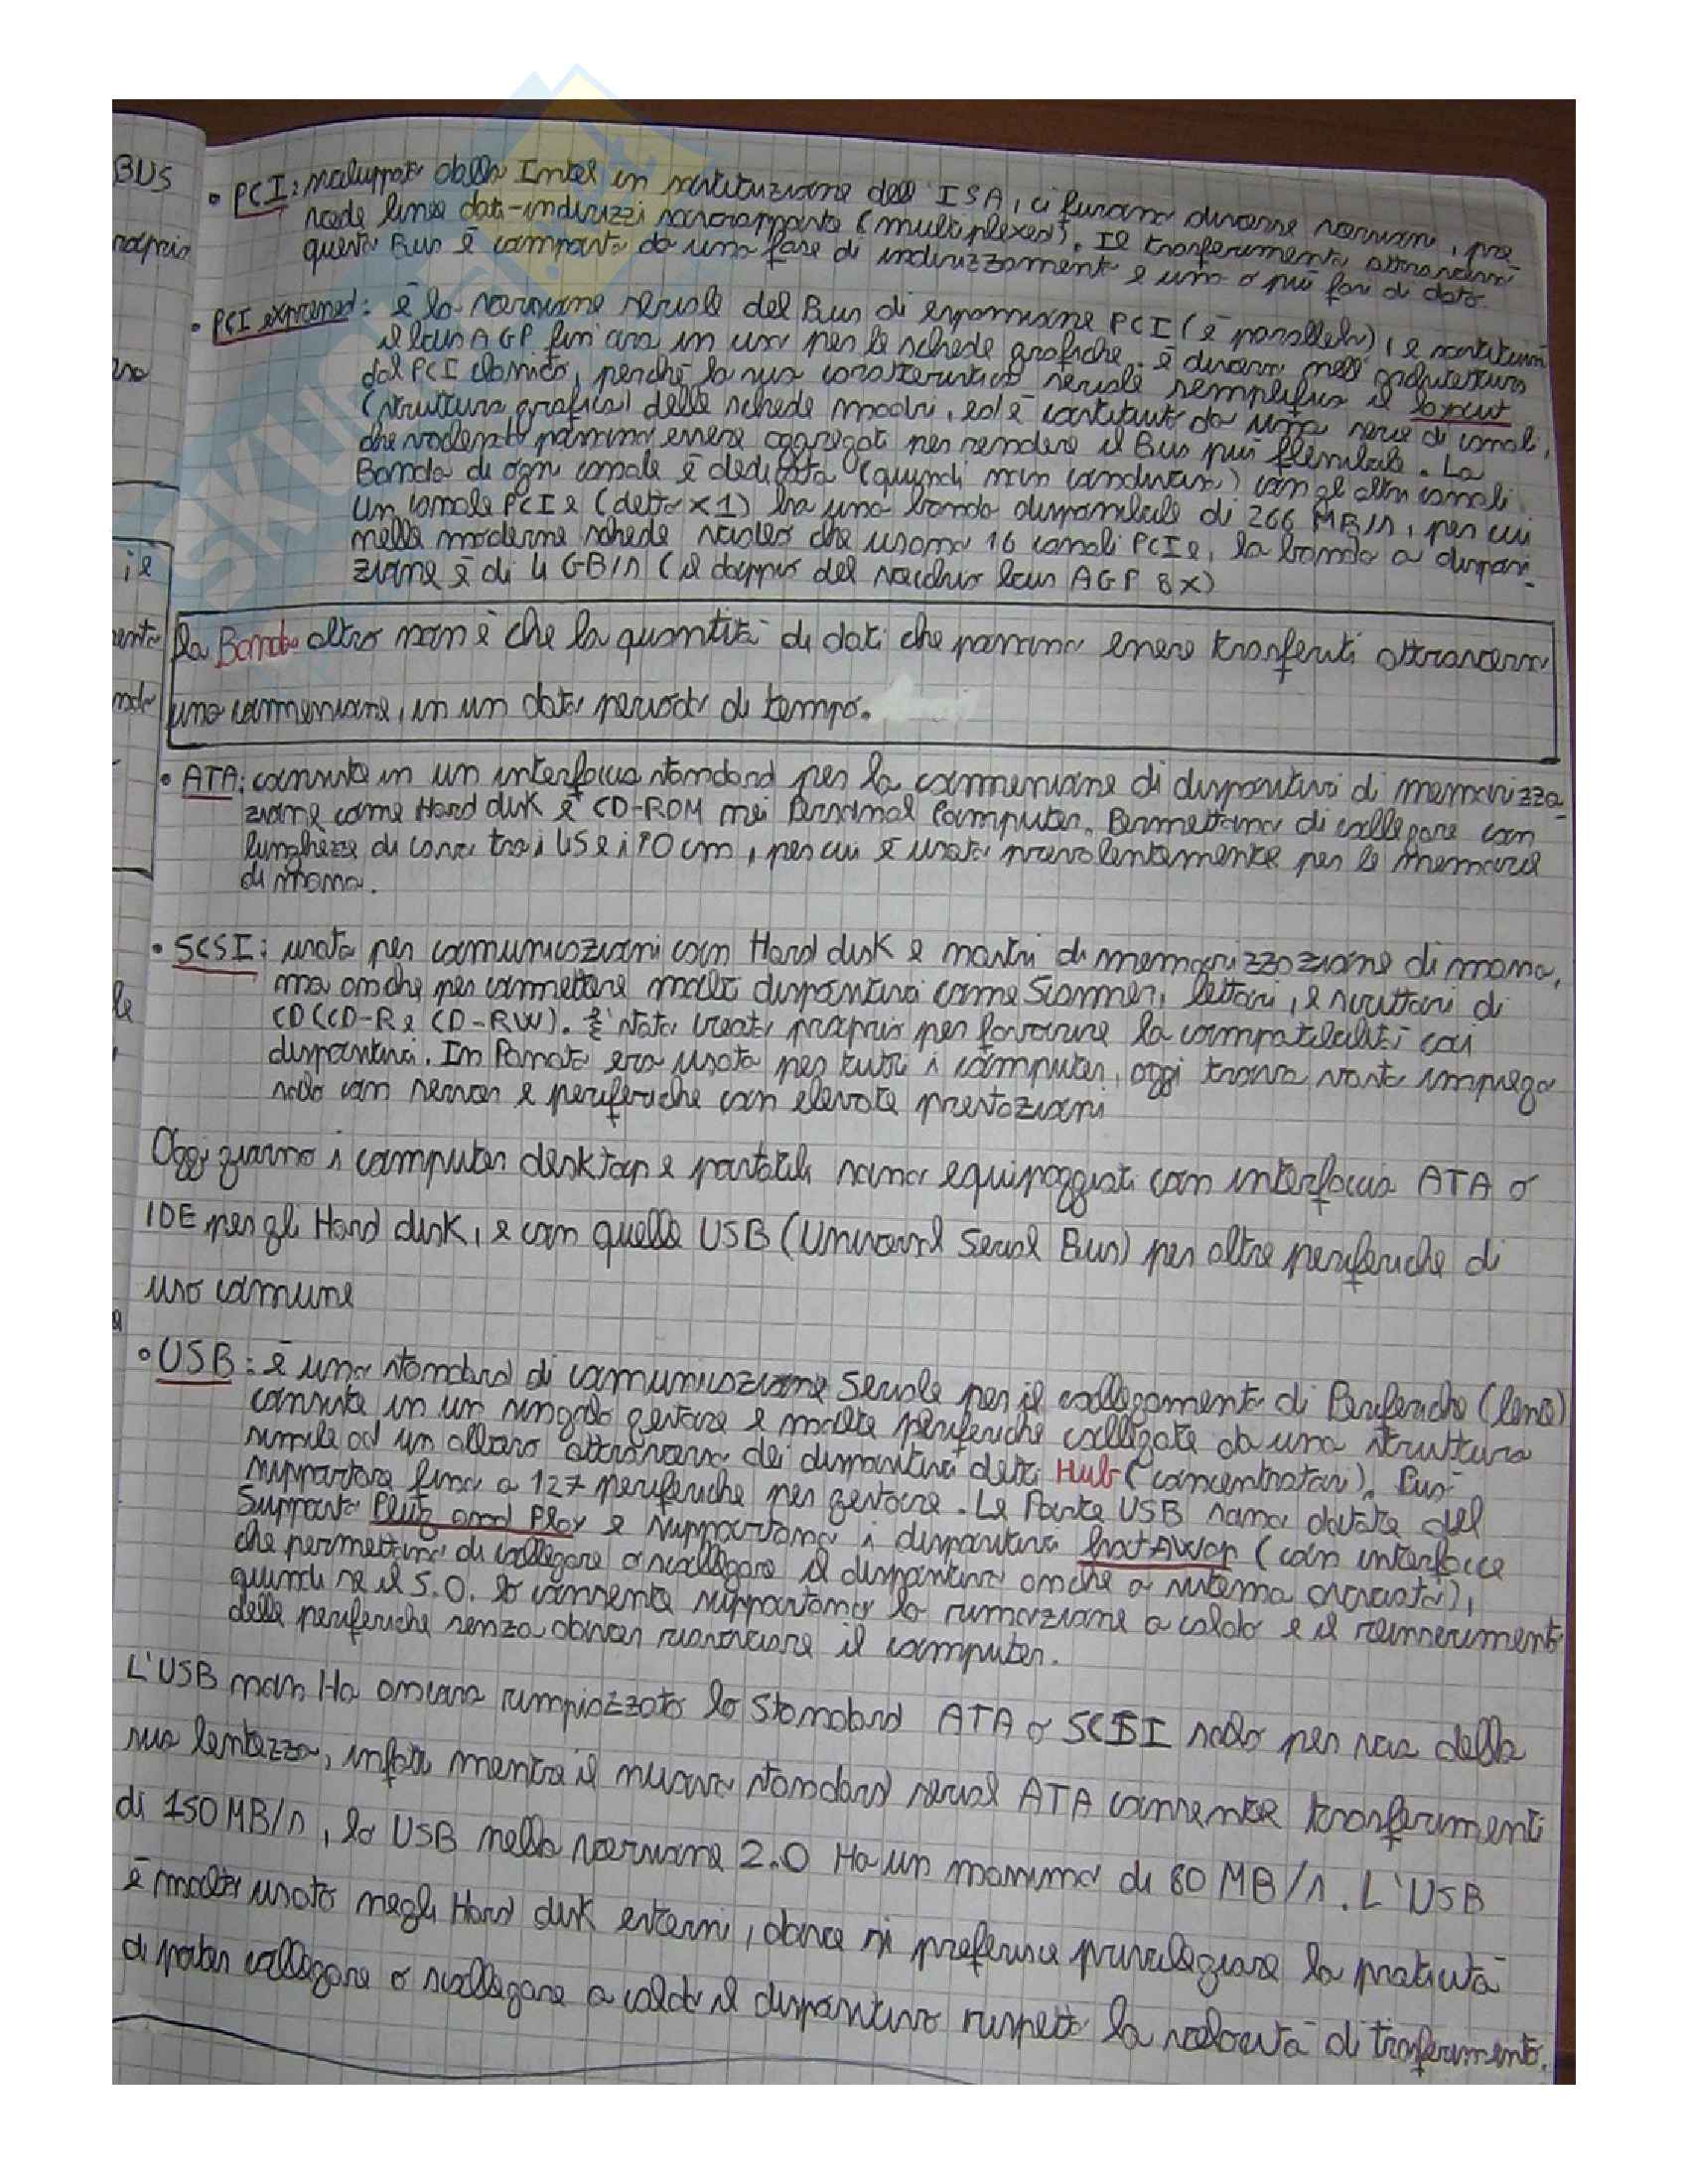 BUS
• PCI: sviluppato dalla Intel in sostituzione dell'ISA, ci furono diverse versioni, pre
vede linee dati-indirizzi sovrapposte (multiplexed). Il trasferimento attraverso
questo Bus è composto da una fase di indirizzamento e una o più fasi di dato.
• PCI expressed: è la versione seriale del Bus di espansione PCI (è parallelo), e sostituisce
il bus AGP fin'ora in uso per le schede grafiche. è diverso nell'architettura
dal PCI classico, perché la sua caratteristica seriale semplifica il layout
(struttura grafica) delle schede madri, ed è costituito da una serie di canali,
che volendo possono essere aggregati per rendere il Bus più flessibile. La
Banda di ogni canale è dedicata (quindi non condivisa) con gli altri canali
un canale PCI e (detto x1) ha una banda disponibile di 266 MB/s, per cui
nelle moderne schede video che usano 16 canali PCI e, la banda a disposi-
zione è di 4 GB/s (il doppio del vecchio bus AGP 8x)
La Banda altro non è che la quantità di dati che possono essere trasferiti attraverso
una connessione, in un dato periodo di tempo.
• ATA: consiste in un interfaccia standard per la connessione di dispositivi di memorizza-
zione come Hard disk e CD-ROM nei Personal Computer. Permettono di collegare con
lunghezze di cavo tra i 45 e i 90 cm, per cui è usato prevalentemente per le memorie
di massa.
• SCSI: usato per comunicazioni con Hard disk e nastri di memorizzazione di massa,
ma anche per connettere molti dispositivi come Scanner, lettori, e scrittori di
CD (CD-R e CD-RW). È stato creato proprio per favorire la compatibilità coi
dispositivi. In Passato era usato per tutti i computer, oggi trova vasto impiego
solo con server e periferiche con elevate prestazioni
Oggi giorno i computer desktop e portatili sono equipaggiati con interfaccia ATA o
IDE per gli Hard disk, e con quelle USB (Universal Serial Bus) per altre periferiche di
uso comune
• USB: è uno standard di comunicazione Seriale per il collegamento di Periferiche (lento)
consiste in un singolo gestore e molte periferiche collegate da una struttura
simile ad un albero attraverso dei dispositivi detti Hub (concentratori). Può
supportare fino a 127 periferiche per gestore. Le Porte USB sono dotate del
Supporto Plug and Play e supportano i dispositivi hot swap (con interfacce
che permettono di collegare o scollegare il dispositivo anche a sistema avviato),
quindi se il S.O. lo consente supportano la rimozione a caldo e il reinserimento
delle periferiche senza dover riavviare il computer.
L'USB non Ha ancora rimpiazzato lo Standard ATA o SCSI solo per via della
sua lentezza, infatti mentre il nuovo standard serial ATA consente trasferimenti
di 150 MB/s, lo USB nella versione 2.0 Ha un massimo di 60 MB/s. L'USB
è molto usato negli Hard disk esterni, dove si preferisce privilegiare la praticità
di poter collegare o scollegare a caldo il dispositivo rispetto la velocità di trasferimento.